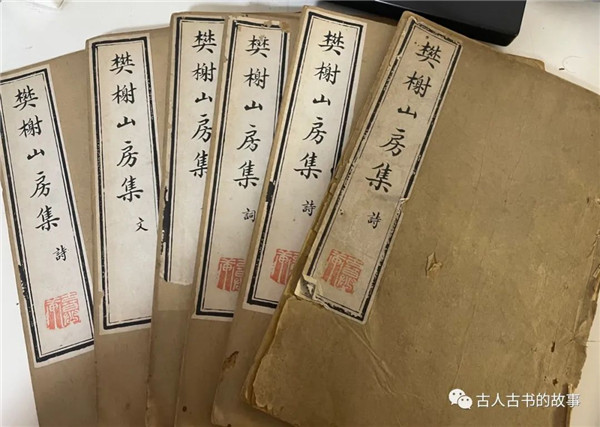 樊榭山房集 詩
樊榭山房集 文
樊榭山房集
樊榭山房集 詞
樊榭山房集 詩
樊榭山房集 詩
古人古书的故事